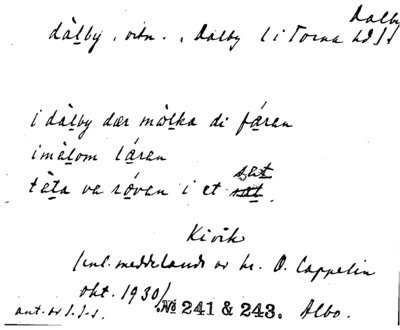 Dalby
dàlby, ortn., Dalby (i Torna hd).
i dàlby dær mòlka di fáren
imèlom láren
tèta va røven i et
Kivik
(enl. meddelande av hr. O. Cappelin
okt. 1930).
ant. av I.I-s. № 241 & 243. Albo.